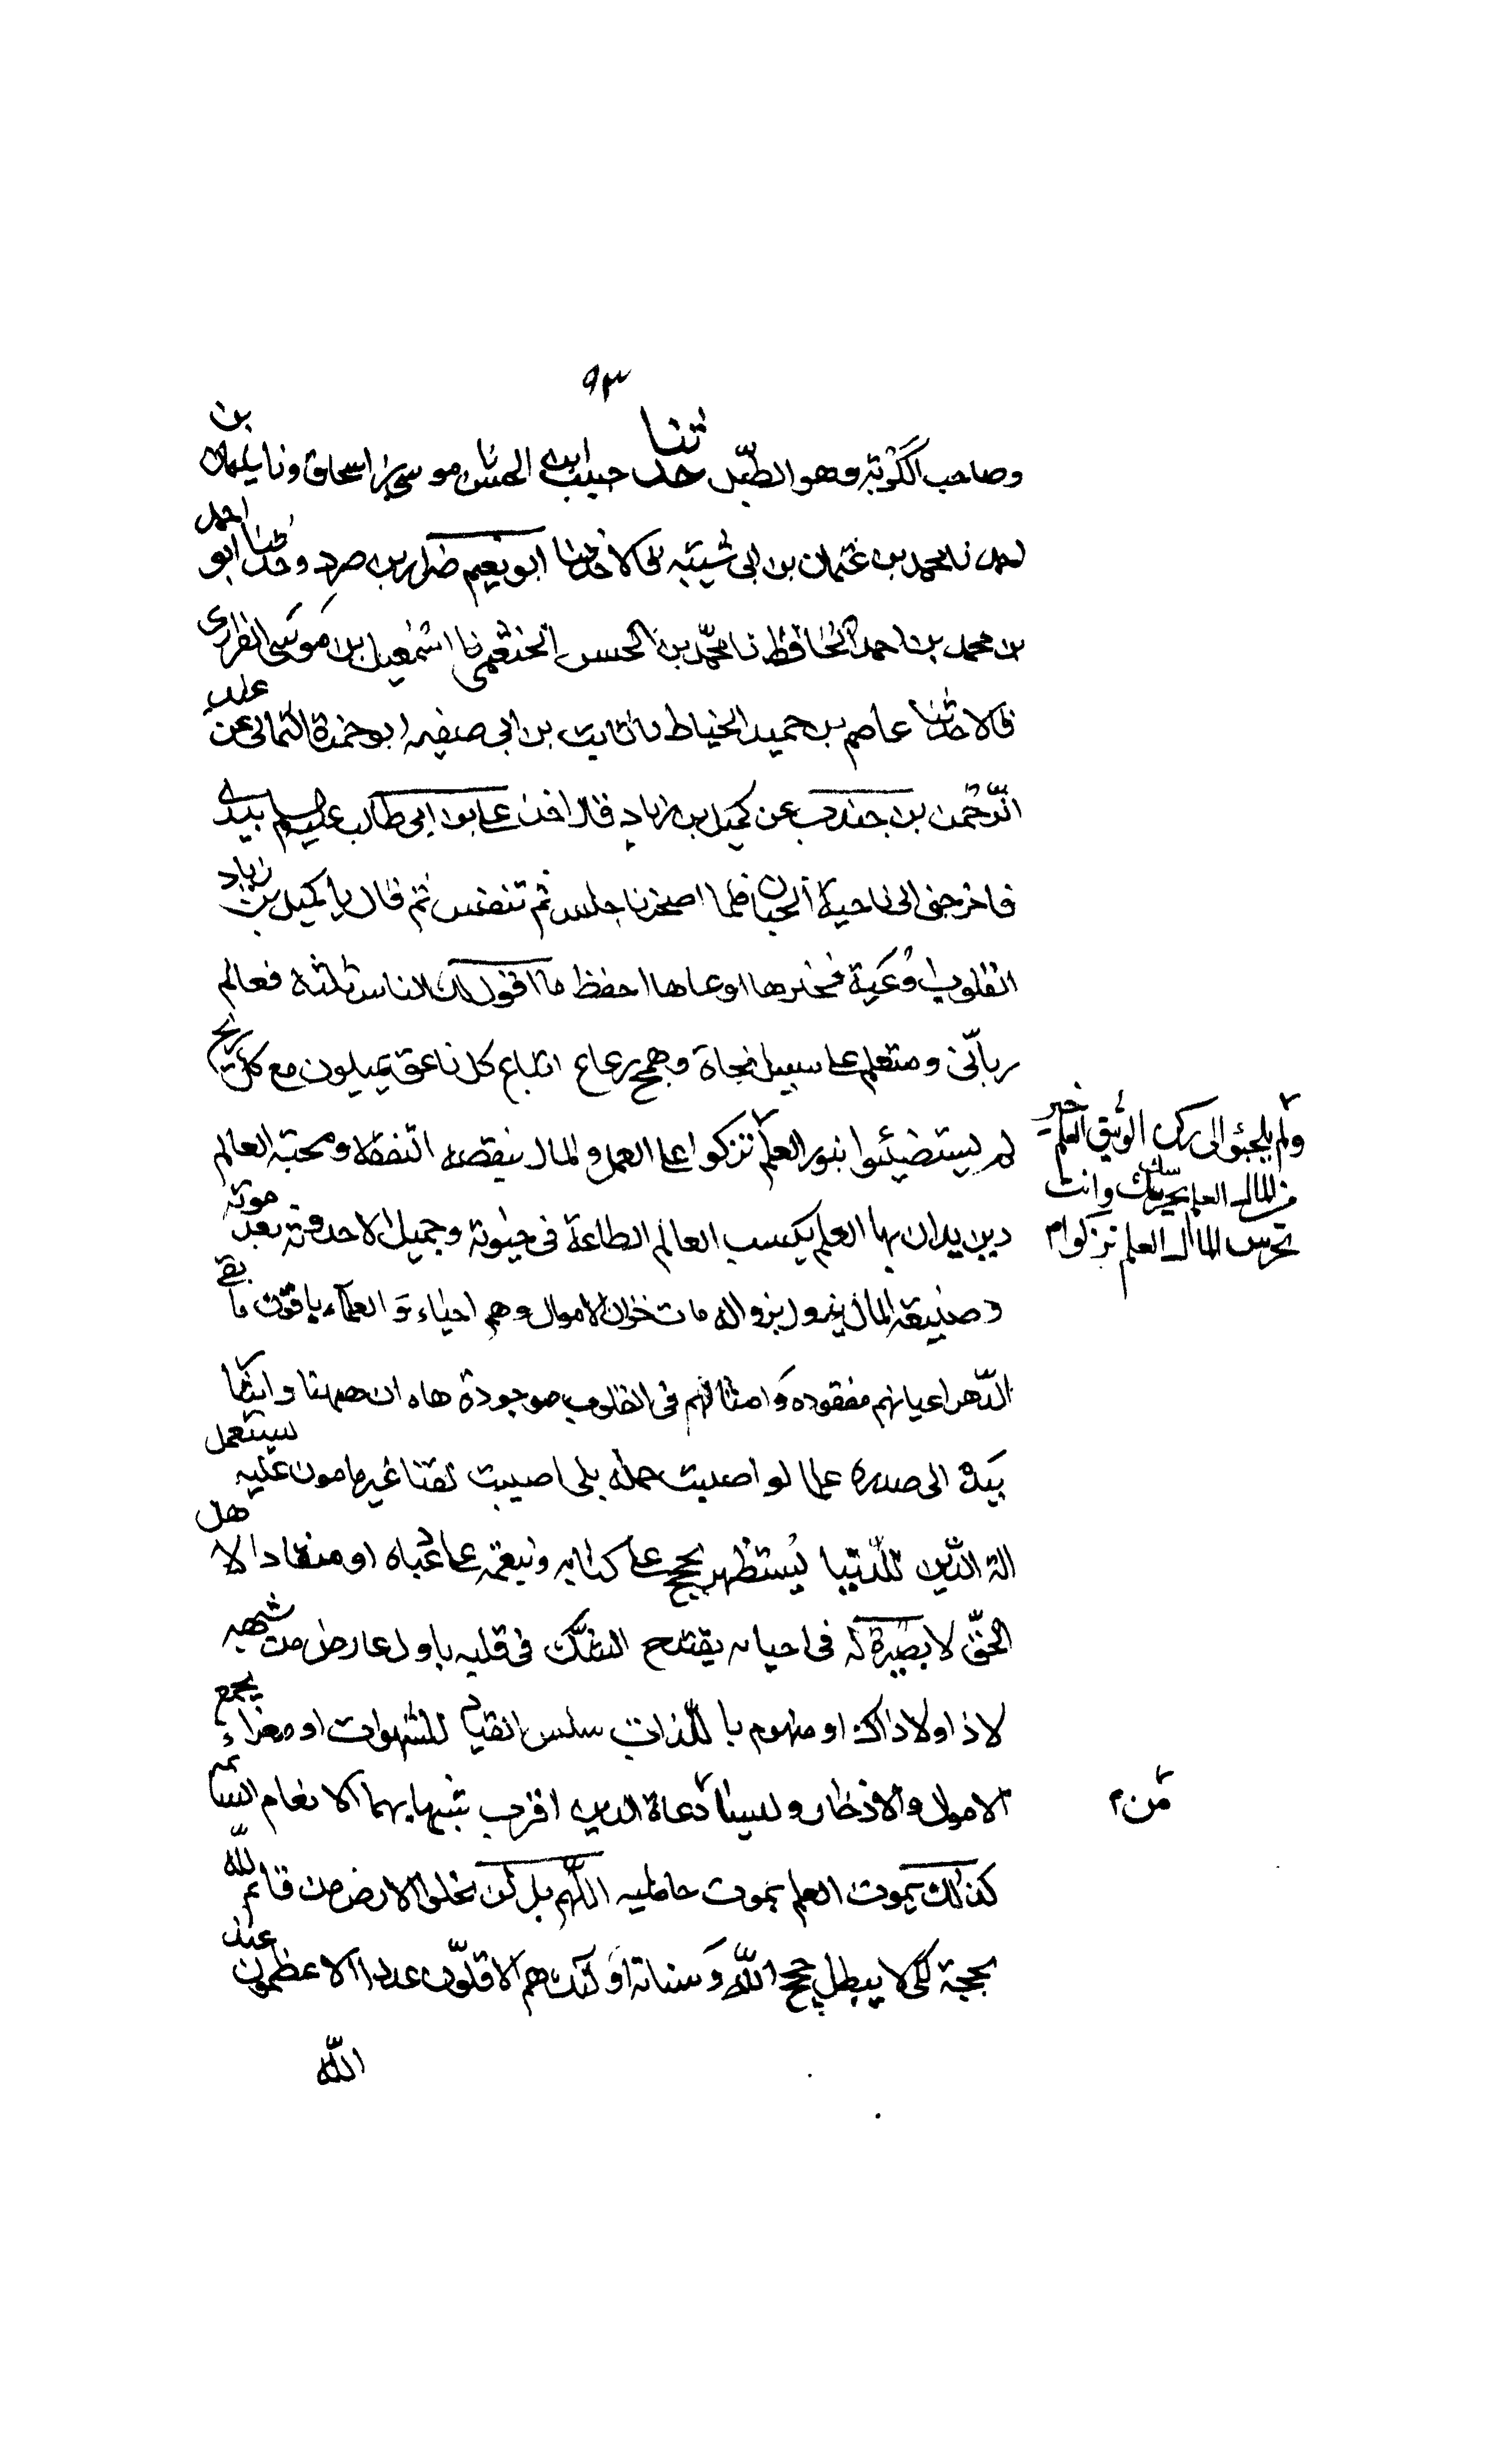 ٩٣
وصاحب الكوبة وهو الطبل حدثنا حبيب ابن الحسن نا موسى بن اسحاق ونا سليمان بن
احمد نا محمد بن عثمان بن ابى شيبه قالا حدثنا ابو نعيم ضرار بن صرد وحدثنا ابو احمد
بن محمد بن احمد الحافظ نا محمّد بن الحسن الخثعمى نا اسمعيل بن موسى الفزارى
قالا حدثنا عاصم بن حميد الخياط نا ثابت بن ابى صفيه ابو حمزة الثمالى عن عبد
الرّحمن بن جندب عن كميل بن زياد قال اخذ على بن ابى طالب عليه السلم بيدى
فاخرجنى الى ناحية الجبان فلما اصحرنا جلس ثم تنفس ثم قال يا كميل بن زياد
القلوب اوعية فخيرها اوعاها احفظ ما اقول لك الناس ثلثة فعالم
ربانّى ومتعلم على سبيل نجاة وهمج رعاع اتباع كل ناعق يميلون مع كل ريح
لم يستضيئوا بنور العلم تزكوا على العمل والمال ينقصه النفقة ومحبة العالم
ولم يلجئوا الى ركن الوثيق العلم خير
من المال العلم يحرسك وانت
تحرس المال العلم تزكوا م
دين يدان بها العلم يكسب العالم الطاعة فى حيوته وجميل الاحدوثة بعد موته
وصنيعة المال يزول بزواله مات خزان الاموال وهم احياء و العلماء باقون ما بقى
الدّهر اعيانهم مفقوده و امثالهم فى القلوب موجودة هاه ان ههنا و اشار
بيده الى صدره علما لو اصبت حمله بلى اصيبت لقنا غير مامون عليه يستعمل
الة الدّين للدّنيا يستظهر بحجج على كتابه وبنعمه على عباده او منقادا لاهل
الحقّ لا بصيرة له فى احيائه يقتدح الشكّ فى قلبه باول عارض من شبهه
لا ذا ولا ذاك او منهوم باللّذات سلس القياد للشهوات او مغراء يجمع
الاموال والادخار وليسا دعاة الدين اقرب شبها بهما الانعام السائمه
من م
كذلك يموت العلم بموت حامليه اللّهم بل لن يخلى الارض من قائم لله
بحجة لكى لا يبطل حجج اللّه و بيناته اولئك هم الاقلّون عددا الاعظمون عند
اللّه